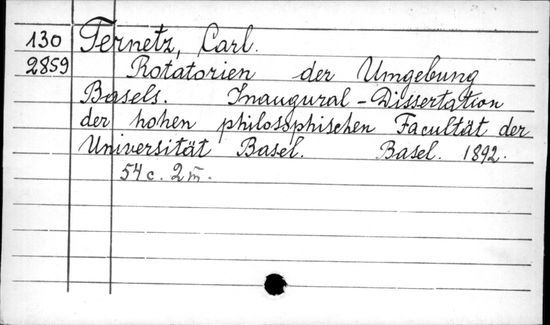 130 Ternetz, Carl.
2859 Rotatorien der Umgebung
Basels. Inaugural-Dissertation
der hohen philosophischen Facultät der
Universität Basel. Basel. 1892.
54 c. 2 т.